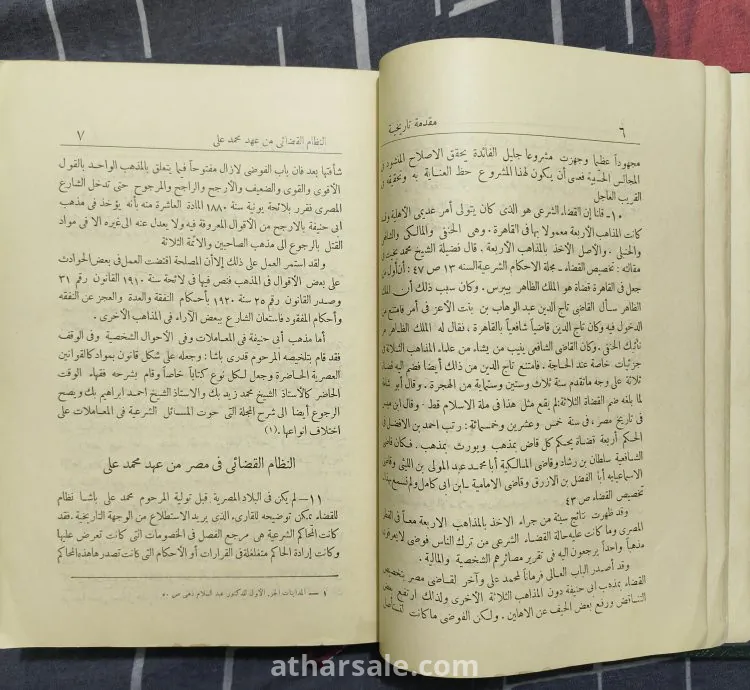 ٦ مقدمة تاريخية
مجهوداً عظيما وجهزت مشروعا جليل الفائدة يحقق الاصلاح المنشود
المجالس الحسبية فعسى أن يكون لهذا المشروع حظ العناية به وتحقيقه
القريب العاجل
١٠- قلنا إن القضاء الشرعى هو الذى كان يتولى أمر عديمى الاهلية
كانت المذاهب الأربعة معمولا بها فى القاهرة . وهى الحنفى والمالكى والشافعى
والحنبلى . والاصل الاخذ بالمذاهب الاربعة . قال فضيلة الشيخ محمد
مقالته : تخصيص القضاء - مجلة الاحكام الشرعية السنه ١٣ ص ٤٧ : أن أول من
جعل فى القاهرة قضاة هو الملك الظاهر بيبرس . وكان سبب ذلك أن الملك
الظاهر سأل القاضى تاج الدين عبد الوهاب بن بنت الاعز فى أمر فامتنع من
الدخول فيه وكان تاج الدين قاضياً شافعياً بالقاهرة ، فقال له الملك الظاهر مر
نائبك الحنفى . وكان القاضى الشافعى ينيب من يشاء من علماء المذاهب الثلاثة فى
جزئيات خاصة عند الحاجة . فامتنع تاج الدين من ذلك أيضا فضم اليه قضاة
ثلاثة على وجه ماتقدم سنة ثلاث وستين وستماية من الهجرة . وقال أبو شامة
لما بلغه ضم القضاة الثلاثة : لم يقع مثل هذا فى ملة الاسلام قط . وقال ابن ميسر
فى تاريخ مصر ، فى سنة خمس وعشرين وخمسماية : رتب احمد بن الافضل فى
الحكم أربعة قضاة يحكم كل قاض بمذهب ويورث بمذهب . فكان قاضى
الشافعية سلطان بن رشاد وقاضى المالكية أبا محمد عبد المولى بن اللبنى وقاضى
الاسماعيلية أبا الفضل بن الازرق وقاضى الامامية - ابن ابى كامل ولم نسمع بهذا
تخصيص القضاء ص ٤٣
وقد ظهرت نتائج سيئة من جراء الاخذ بالمذاهب الاربعة معاً فى القطر
المصرى وما كانت عليه حالة القضاء الشرعى من ترك الناس فوضى لا يعرفون
مذهباً واحداً يرجعون اليه فى تقرير مصائرهم الشخصية والمالية .
وقد أصدر الباب العالى فرماناً لمحمد على وآخر لقاضى مصر بتخصيص
القضاء بمذهب ابى حنيفة دون المذاهب الثلاثة الأخرى ولذلك ارتفع بعض
التناقض ورفع بعض الحيف عن الاهلين . ولكن الفوضى ما كانت لتستأصل
النظام القضائى من عهد محمد على ٧
شأفتها بعد فان باب الفوضى لا زال مفتوحاً فيما يتعلق بالمذهب الواحد بالقول
الأقوى والقوى والضعيف والأرجح والراجح والمرجوح حتى تدخل الشارع
المصرى فقرر بلائحة يونية سنة ١٨٨٠ المادة العاشرة منه بأنه يؤخذ فى مذهب
ابى حنيفة بالارجح من الأقوال المعروفة فيه ولا يعدل عنه الى غيره الا فى مواد
القتل بالرجوع الى مذهب الصاحبين والأئمة الثلاثة
ولقد استمر العمل على ذلك إلا أن المصلحة اقتضت العمل فى بعض الحوادث
على بعض الأقوال فى المذهب فنص فيها فى لائحة سنة ١٩١٠ القانون رقم ٣١
وصدر القانون رقم ٢٥ سنة ١٩٢٠ بأحكام النفقة والعدة والعجز عن النفقه
وأحكام المفقود فاستعان الشارع ببعض الآراء فى المذاهب الأخرى .
أما مذهب أبى حنيفة فى المعاملات وفى الأحوال الشخصية وفى الوقف
فقد قام بتلخيصه المرحوم قدرى باشا : وجعله على شكل قانون بمواد كالقوانين
العصرية الحاضرة وجعل لكل نوع كتاباً خاصاً وقام بشرحه فقهاء الوقت
الحاضر كالأستاذ الشيخ محمد زيد بك والاستاذ الشيخ احمد ابراهيم بك ويصح
الرجوع أيضا الى شرح المجلة التى حوت المسائل الشرعية فى المعاملات على
اختلاف انواعها . (١)
النظام القضائى فى مصر من عهد محمد على
١١- لم يكن فى البلاد المصرية قبل تولية المرحوم محمد على باشا نظام
للقضاء يمكن توضيحه للقارىء الذى يريد الاستطلاع من الوجهة التاريخية . فقد
كانت المحاكم الشرعية هى مرجع الفصل فى الخصومات التى كانت تعرض عليها
وكانت إرادة الحاكم متغلغلة فى القرارات أو الأحكام التى كانت تصدرها هذه المحاكم
١ — المداينات الجزء الأول للدكتور عبد السلام ذهنى ص ٥٠
atharsale.com